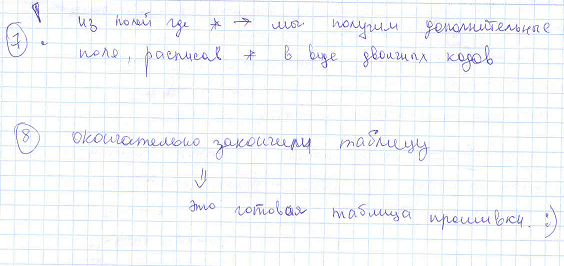 7! из полей где * → мы получим дополнительные
поля, расписав * в виде двоичных кодов
8 окончательно закончим таблицу
⇓
это готовая таблица прошивки. :)